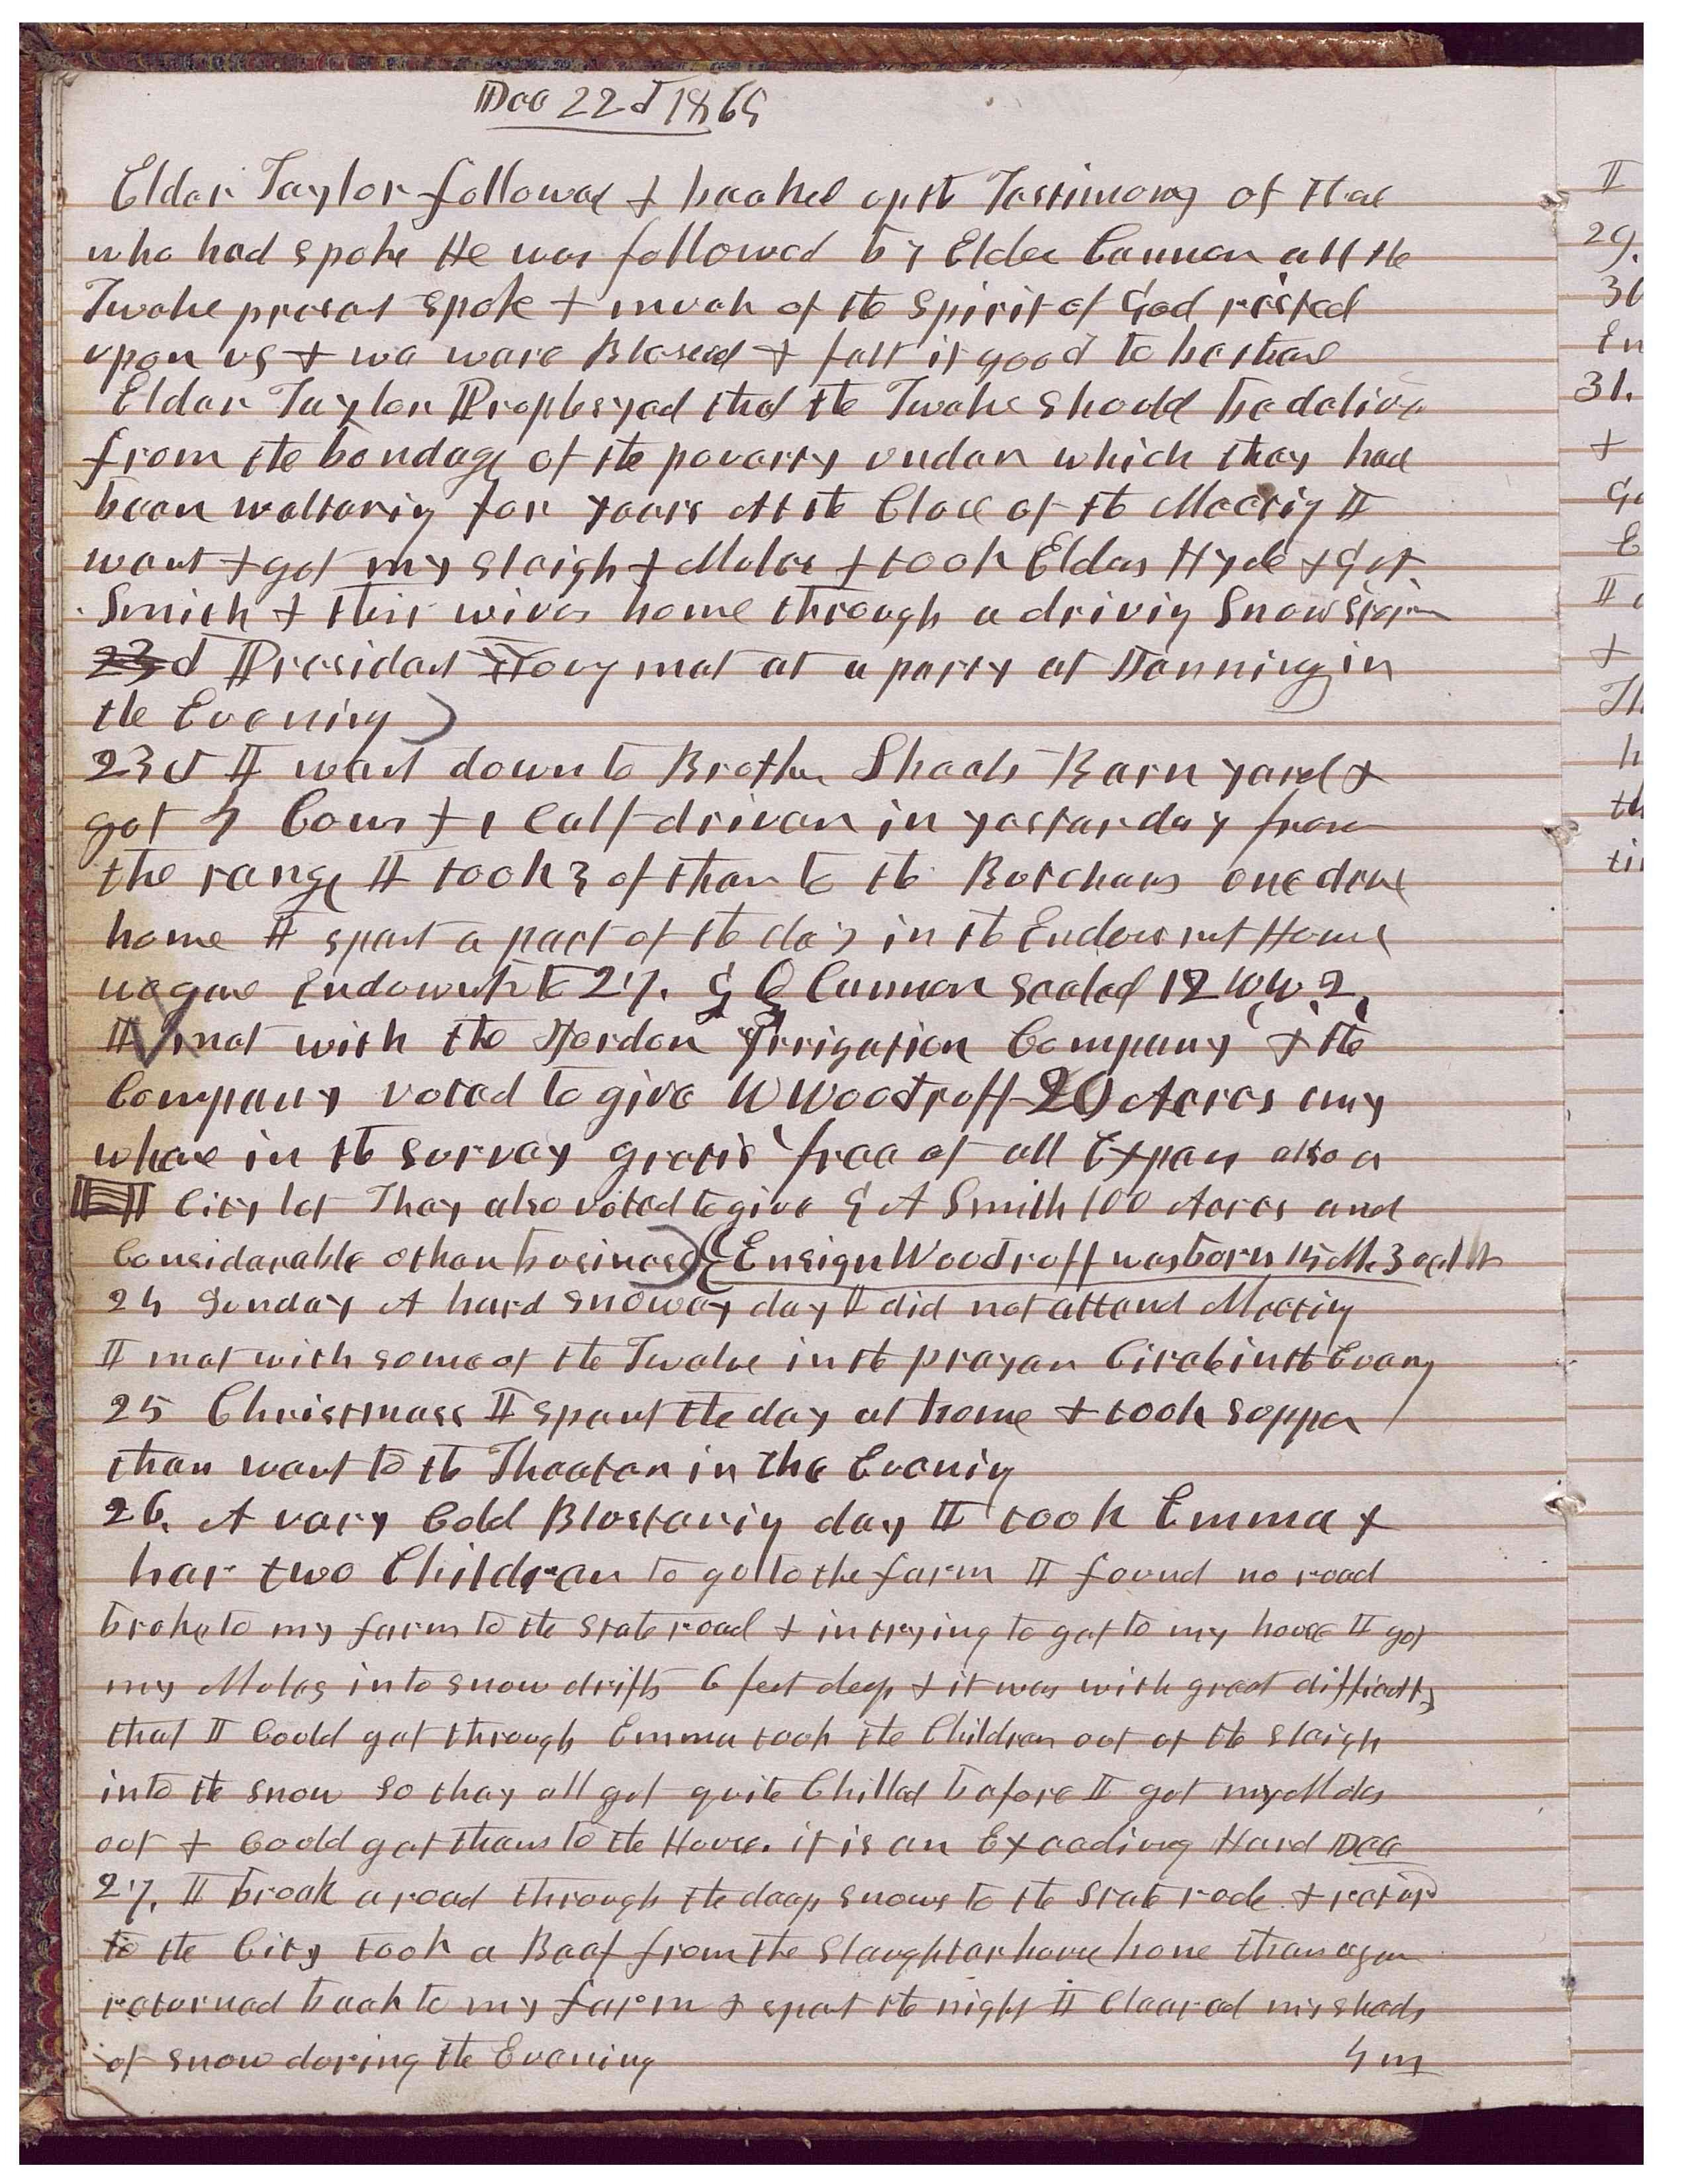 Dec 22d 1865
Elder Taylor followed & backed up the Testimony of those
who had spoke He was followed by Elder Cannon all the
Twelve present spoke & much of the Spirit of God rested
upon us & we ware Blessed & felt it good to be there
Elder Taylor Prophesyed that the Twelve should be deliver
from the bondage of the poverty under which they had
been weltering for years At the Close of the Meeting I
went & got my sleigh & Mules & took Elders Hyde & G A
Smith & their wives home through a driving Snow storm
23d President Young met at a party at Jennings in
the Evening)
23d I went down to Brother Sheads Barn yard &
got 4 Cows & 1 Calf driven in yesterday from
the range I took 3 of them to the Butchers one drove
home I spent a part of the day in the Endowmt House
we gave Endowmts to 27. G Q Cannon sealed 12 W W 2.
I met with the Jordon Irrigation Company & the
Company voted to give W Woodruff 20 Acres any
whare in the survey gratis free of all Expens also a
City lot They also voted to give G A Smith 100 Acres and
Considerable other business) (Ensign Woodruff was born 15 M. 3 oclok
24 Sunday A hard snowey day I did not attend Meeting
I met with some of the Twelve in the prayer Circle in the Eveng
25 Christmass I spent the day at home & took supper
then went to the Theater in the Evening
26. A very Cold Blustering day I took Emma &
her two Children to go to the farm I found no road
broke to my farm to the State road & in trying to get to my house I got
my Mules into snow drifts 6 feet deep & it was with great difficulty
that I Could get through Emma took the Children out of the sleigh
into the snow so they all got quite Chilled before I got my Mules
out & Could get them to the House. it is an Exceeding Hard Dec
27. I broak a road through the deep snows to the State rode & return
to the City took a Beef from the Slaughter house home then again
returned back to my farm & spent the night I Cleared my sheds
of snow during the Evening 4 m
II
29.
30
En
31.
+
E
II
+
Th
h
th